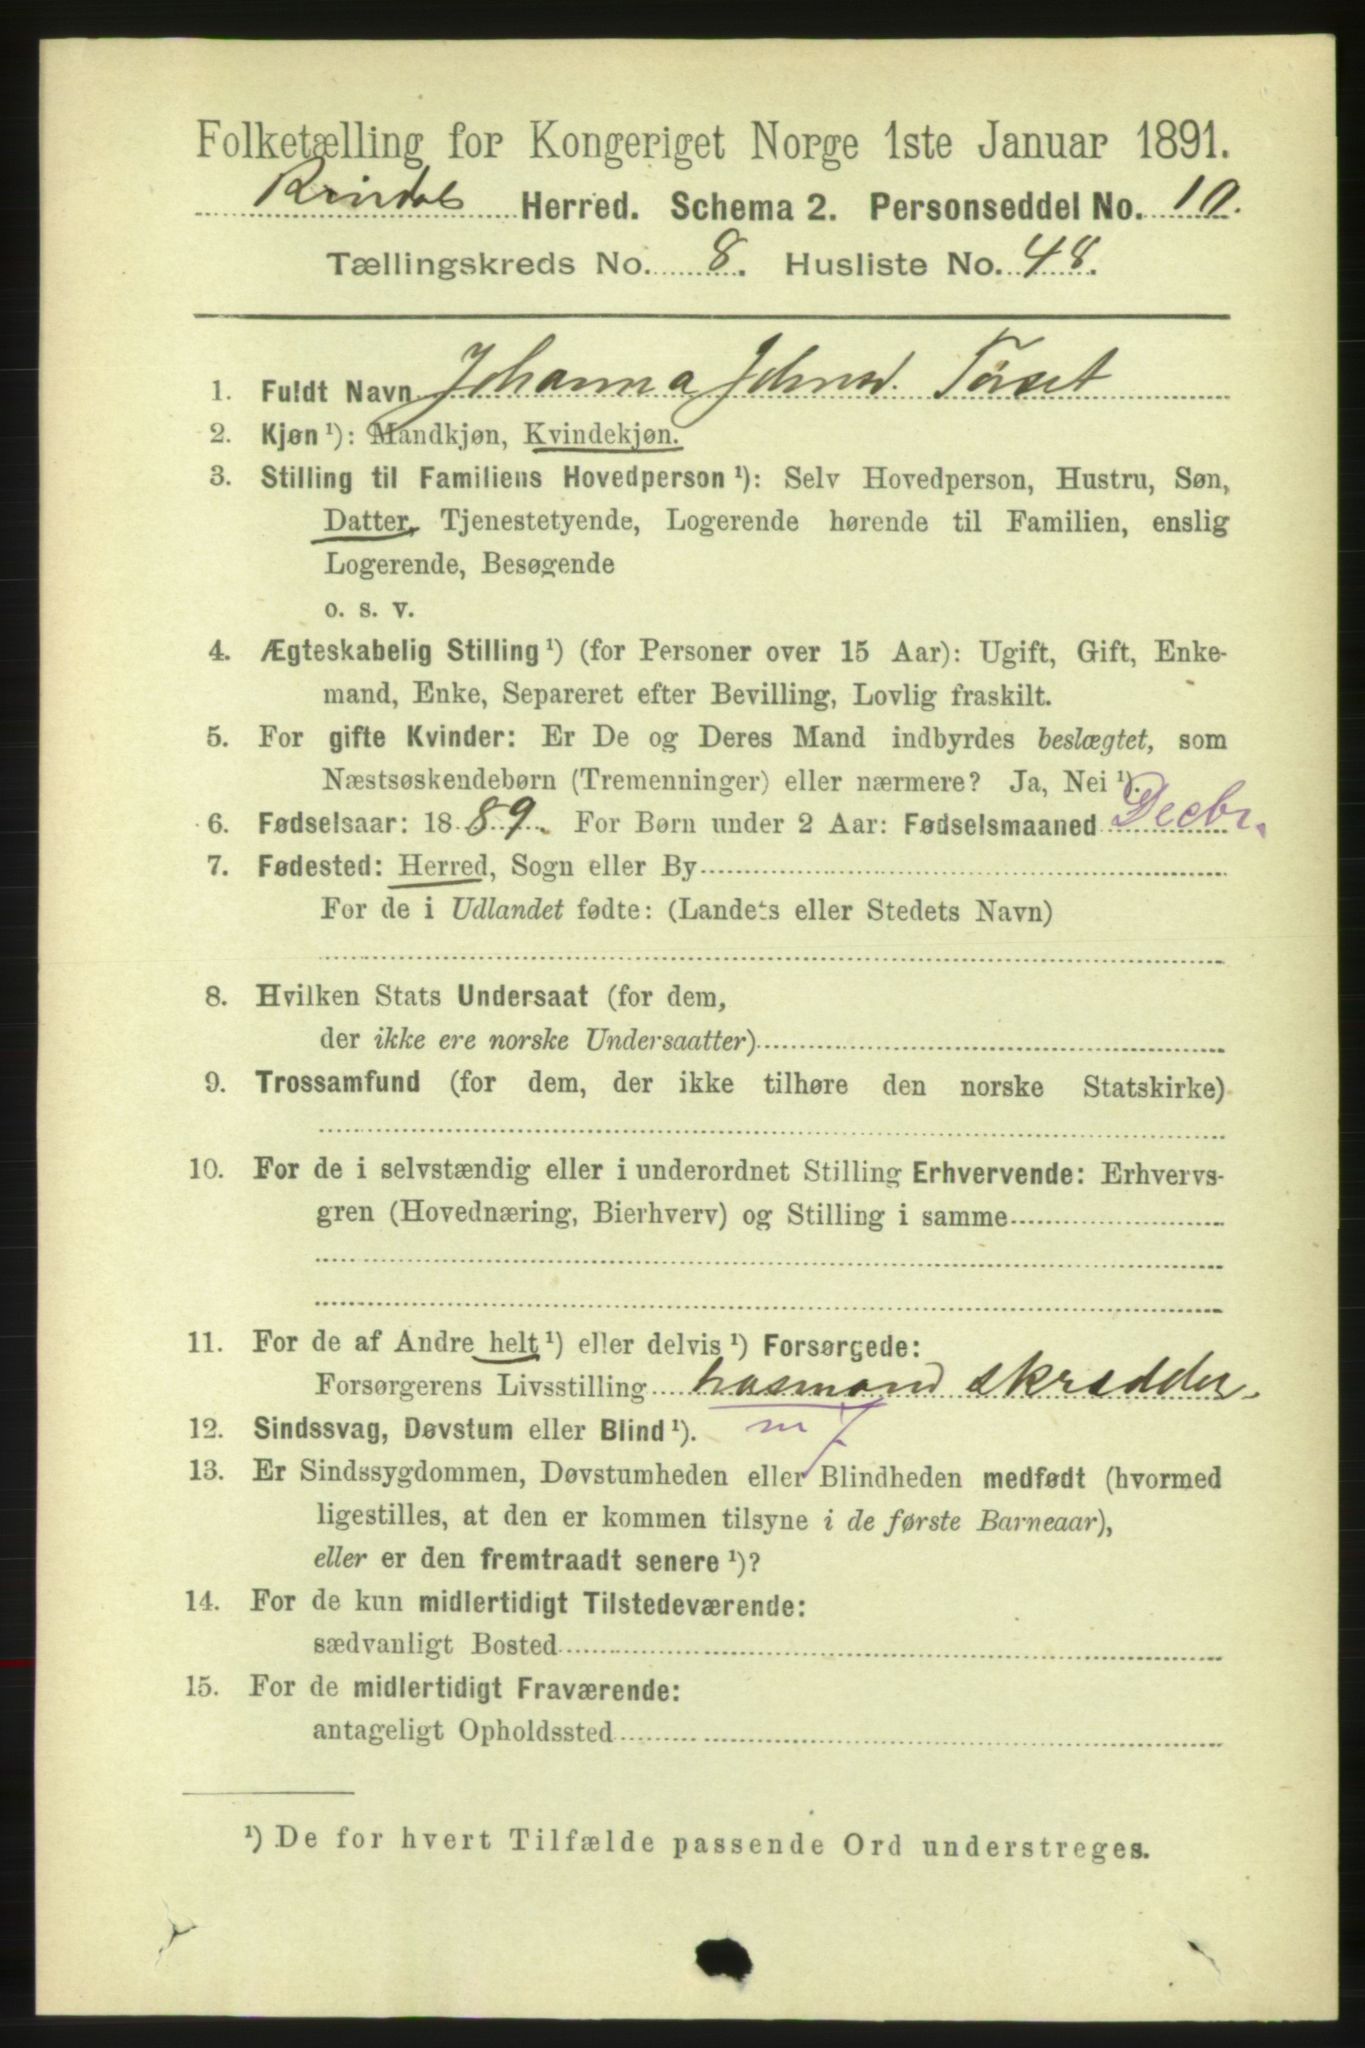 Folketælling for Kongeriget Norge 1ste Januar 1891.
Rindals Herred. Schema 2. Personseddel No. 10.
Tællingskreds No. 8. Husliste No. 48.
1. Fuldt Navn Johanna Johnsd. Törset
2. Kjøn ¹): Mandkjøn, Kvindekjøn.
3. Stilling til Familiens Hovedperson ¹): Selv Hovedperson, Hustru, Søn,
Datter, Tjenestetyende, Logerende hørende til Familien, enslig
Logerende, Besøgende
o. s. v.
4. Ægteskabelig Stilling ¹) (for Personer over 15 Aar): Ugift, Gift, Enke-
mand, Enke, Separeret efter Bevilling, Lovlig fraskilt.
5. For gifte Kvinder: Er De og Deres Mand indbyrdes beslægtet, som
Næstsøskendebørn (Tremenninger) eller nærmere? Ja, Nei ¹).
6. Fødselsaar: 1889. For Børn under 2 Aar: Fødselsmaaned Decbr.
7. Fødested: Herred, Sogn eller By
For de i Udlandet fødte: (Landets eller Stedets Navn)
8. Hvilken Stats Undersaat (for dem,
der ikke ere norske Undersaatter)
9. Trossamfund (for dem, der ikke tilhøre den norske Statskirke)
10. For de i selvstændig eller i underordnet Stilling Erhvervende: Erhvervs-
gren (Hovednæring, Bierhverv) og Stilling i samme
11. For de af Andre helt ¹) eller delvis ¹) Forsørgede:
Forsørgerens Livsstilling husmand skrædder.
12. Sindssvag, Døvstum eller Blind ¹). m 7
13. Er Sindssygdommen, Døvstumheden eller Blindheden medfødt (hvormed
ligestilles, at den er kommen tilsyne i de første Barneaar),
eller er den fremtraadt senere ¹)?
14. For de kun midlertidigt Tilstedeværende:
sædvanligt Bosted
15. For de midlertidigt Fraværende:
antageligt Opholdssted
¹) De for hvert Tilfælde passende Ord understreges.